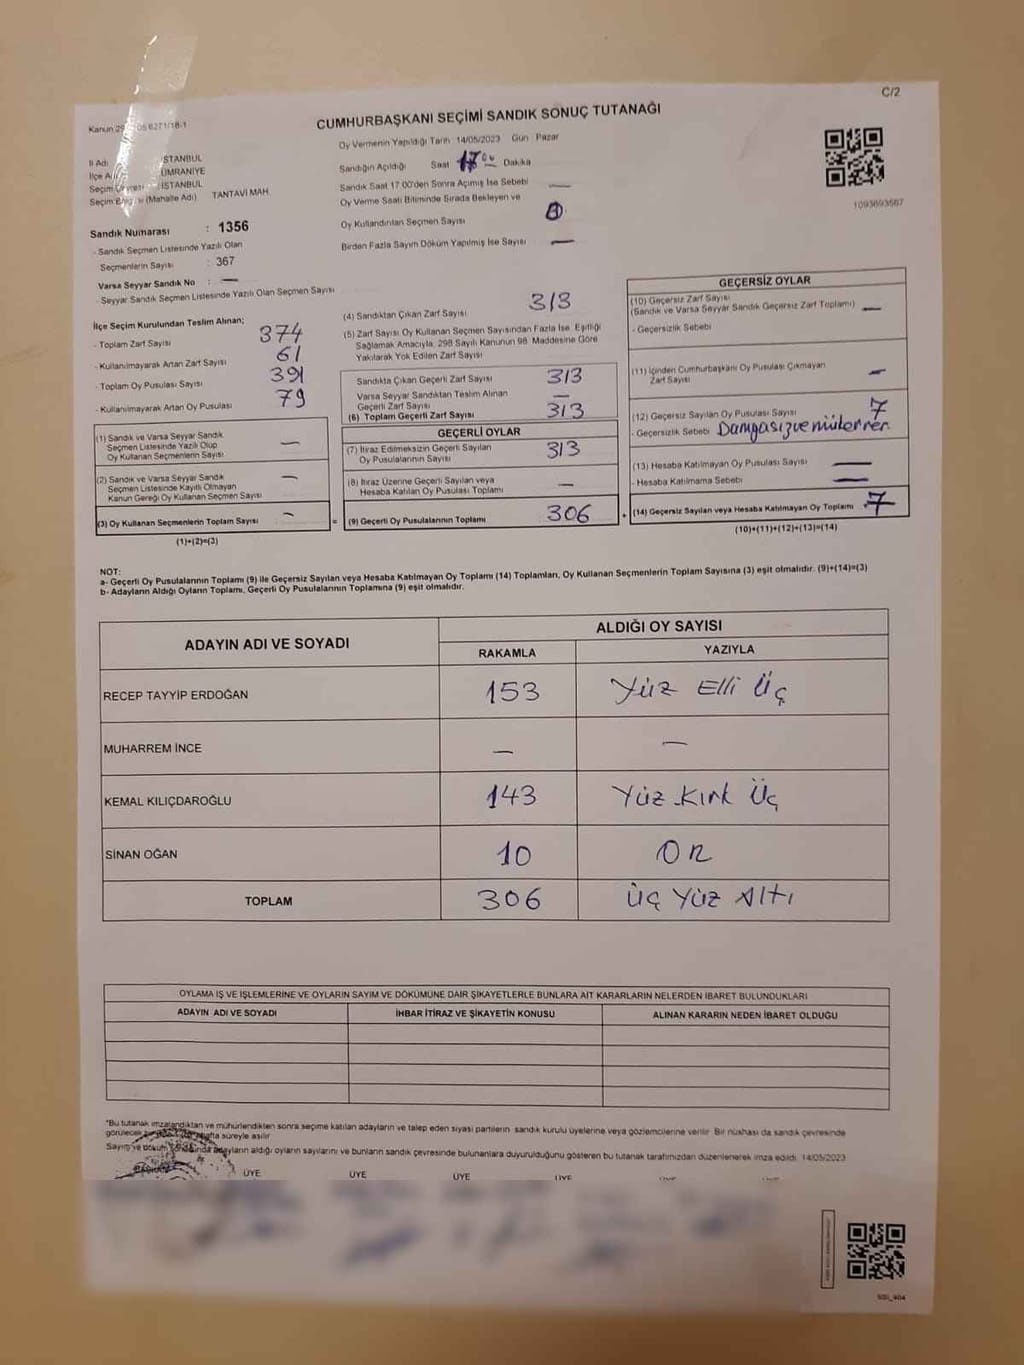 C/2
CUMHURBAŞKANI SEÇİMİ SANDIK SONUÇ TUTANAĞI
Oy Vermenin Yapıldığı Tarih 14/05/2023 Gün : Pazar
İl Adı İSTANBUL
İlçe ÜMRANİYE
Seçim İSTANBUL
(Mahalle Adı) TANTAVİ MAH.
Sandığın Açıldığı Saat 17 00 Dakika
Sandık Saat 17.00'den Sonra Açılmış İse Sebebi —
Oy Verme Saati Bitiminde Sırada Bekleyen ve
Oy Kullandırılan Seçmen Sayısı
Birden Fazla Sayım Döküm Yapılmış İse Sayısı —
1093693567
Sandık Numarası : 1356
- Sandık Seçmen Listesinde Yazılı Olan
Seçmenlerin Sayısı : 367
Varsa Seyyar Sandık No : —
- Seyyar Sandık Seçmen Listesinde Yazılı Olan Seçmen Sayısı
İlçe Seçim Kurulundan Teslim Alınan;
- Toplam Zarf Sayısı 374
- Kullanılmayarak Artan Zarf Sayısı 61
- Toplam Oy Pusulası Sayısı 391
- Kullanılmayarak Artan Oy Pusulası 79
(1) Sandık ve Varsa Seyyar Sandık
Seçmen Listesinde Yazılı Olup
Oy Kullanan Seçmenlerin Sayısı —
(2) Sandık ve Varsa Seyyar Sandık
Seçmen Listesinde Kayıtlı Olmayan
Kanun Gereği Oy Kullanan Seçmen Sayısı —
(3) Oy Kullanan Seçmenlerin Toplam Sayısı —
(1)+(2)=(3)
(4) Sandıktan Çıkan Zarf Sayısı 313
(5) Zarf Sayısı Oy Kullanan Seçmen Sayısından Fazla İse, Eşitliği
Sağlamak Amacıyla, 298 Sayılı Kanunun 98. Maddesine Göre
Yakılarak Yok Edilen Zarf Sayısı
Sandıkta Çıkan Geçerli Zarf Sayısı 313
Varsa Seyyar Sandıktan Teslim Alınan
Geçerli Zarf Sayısı —
(6) Toplam Geçerli Zarf Sayısı 313
GEÇERLİ OYLAR
(7) İtiraz Edilmeksizin Geçerli Sayılan
Oy Pusulalarının Sayısı 313
(8) İtiraz Üzerine Geçerli Sayılan veya
Hesaba Katılan Oy Pusulası Toplamı —
= (9) Geçerli Oy Pusulalarının Toplamı 306 +
GEÇERSİZ OYLAR
(10) Geçersiz Zarf Sayısı
(Sandık ve Varsa Seyyar Sandık Geçersiz Zarf Toplamı) —
- Geçersizlik Sebebi
(11) İçinden Cumhurbaşkanı Oy Pusulası Çıkmayan
Zarf Sayısı —
(12) Geçersiz Sayılan Oy Pusulası Sayısı 7
- Geçersizlik Sebebi Damgasız ve mükerrer
(13) Hesaba Katılmayan Oy Pusulası Sayısı —
- Hesaba Katılmama Sebebi —
(14) Geçersiz Sayılan veya Hesaba Katılmayan Oy Toplamı 7
(10)+(11)+(12)+(13)=(14)
NOT:
a- Geçerli Oy Pusulalarının Toplamı (9) ile Geçersiz Sayılan veya Hesaba Katılmayan Oy Toplamı (14) Toplamları, Oy Kullanan Seçmenlerin Toplam Sayısına (3) eşit olmalıdır. (9)+(14)=(3)
b- Adayların Aldığı Oyların Toplamı, Geçerli Oy Pusulalarının Toplamına (9) eşit olmalıdır.
ADAYIN ADI VE SOYADI
ALDIĞI OY SAYISI
RAKAMLA YAZIYLA
RECEP TAYYİP ERDOĞAN 153 Yüz Elli Üç
MUHARREM İNCE — —
KEMAL KILIÇDAROĞLU 143 Yüz Kırk Üç
SİNAN OĞAN 10 On
TOPLAM 306 Üç Yüz Altı
OYLAMA İŞ VE İŞLEMLERİNE VE OYLARIN SAYIM VE DÖKÜMÜNE DAİR ŞİKAYETLERLE BUNLARA AİT KARARLARIN NELERDEN İBARET BULUNDUKLARI
ADAYIN ADI VE SOYADI İHBAR İTİRAZ VE ŞİKAYETİN KONUSU ALINAN KARARIN NEDEN İBARET OLDUĞU
*Bu tutanak imzalandıktan ve mühürlendikten sonra seçime katılan adayların ve talep eden siyasi partilerin sandık kurulu üyelerine veya gözlemcilerine verilir. Bir nüshası da sandık çevresinde
görülecek hafta süreyle asılır
Sayım ve döküm sonunda adayların aldığı oyların sayılarını ve bunların sandık çevresinde bulunanlara duyurulduğunu gösteren bu tutanak tarafımızdan düzenlenerek imza edildi. 14/05/2023
ÜYE ÜYE ÜYE ÜYE